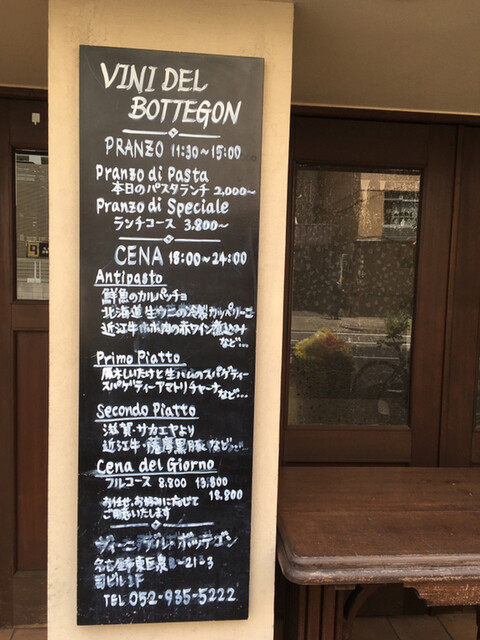 VINI DEL
BOTTEGON
PRANZO 11:30～15:00
Pranzo di Pasta
本日のパスタランチ 2,000～
Pranzo di Speciale
ランチコース 3.800～
CENA 18:00～24:00
Antipasto
鮮魚のカルパッチョ
北海道生ウニの冷製カッペリーニ
近江牛ホホ肉の赤ワイン煮込み
など…
Primo Piatto
原木しいたけと生ハムのスパゲティー
スパゲティーアマトリチャーナ
など…
Secondo Piatto
滋賀・サカエヤより
近江牛・薩摩黒豚 など…
Cena del Giorno
フルコース 8.800 13.800
18.800
お任せ、お好みに応じて
ご用意いたします
ヴィーニ デル・ボッテゴン
名古屋市東区泉 -21-3
ビル2F
TEL 052-935-5222